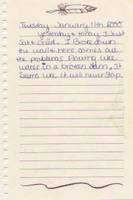 Tuesday January 11th 2000
Yesterday & today I Just
sat & cried. I Broke down
the wall & here comes all
the problems flowing like
water in a broken dam, It
seems like it will never stop.